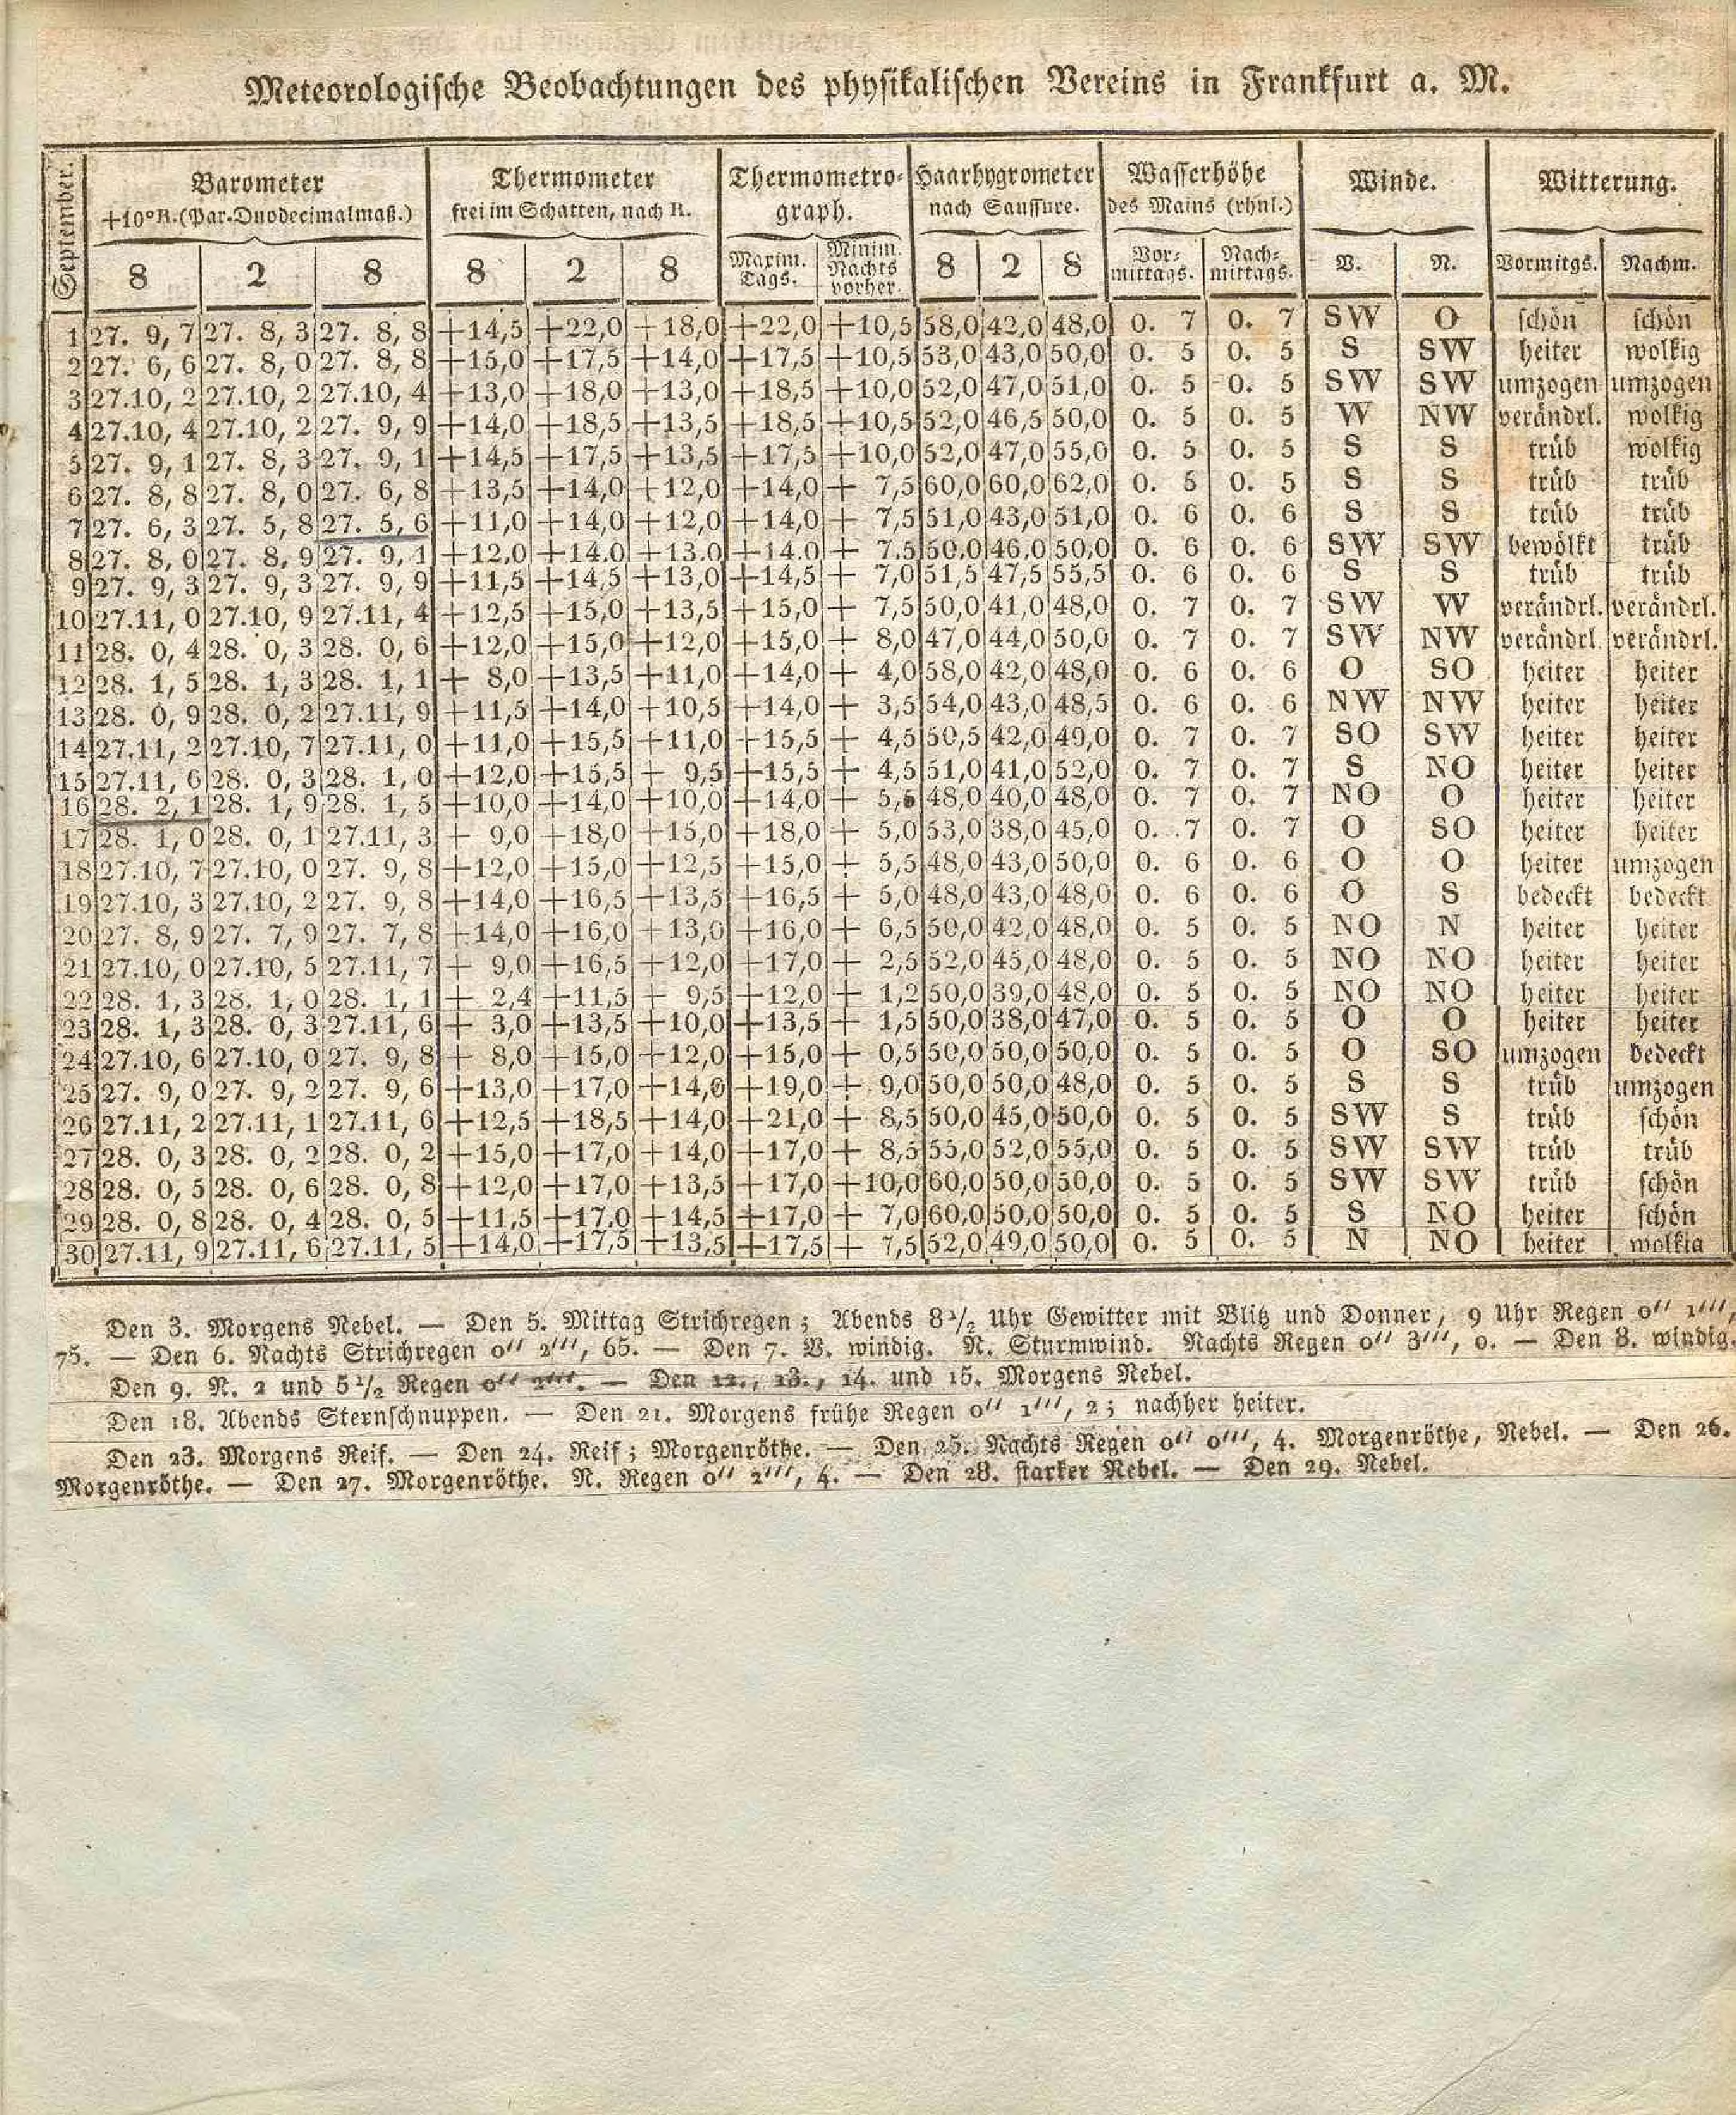 Meteorologische Beobachtungen des physikalischen Vereins in Frankfurt a. M.
September. Barometer Thermometer Thermometro- Haarhygrometer Wasserhöhe Winde. Witterung.
+10°R.(Par.Duodecimalmaß.) frei im Schatten, nach R. graph. nach Saussure. des Mains (rhnl.)
8 2 8 8 2 8 Maxim. Tags. Minim. Nachts vorher. 8 2 8 Vor- mittags. Nach- mittags. V. N. Vormitgs. Nachm.
1 27. 9, 7 27. 8, 3 27. 8, 8 +14,5 +22,0 +18,0 +22,0 +10,5 58,0 42,0 48,0 0. 7 0. 7 SW O schön schön
2 27. 6, 6 27. 8, 0 27. 8, 8 +15,0 +17,5 +14,0 +17,5 +10,5 53,0 43,0 50,0 0. 5 0. 5 S SW heiter wolkig
3 27.10, 2 27.10, 2 27.10, 4 +13,0 +18,0 +13,0 +18,5 +10,0 52,0 47,0 51,0 0. 5 0. 5 SW SW umzogen umzogen
4 27.10, 4 27.10, 2 27. 9, 9 +14,0 +18,5 +13,5 +18,5 +10,5 52,0 46,5 50,0 0. 5 0. 5 W NW verändrl. wolkig
5 27. 9, 1 27. 8, 3 27. 9, 1 +14,5 +17,5 +13,5 +17,5 +10,0 52,0 47,0 55,0 0. 5 0. 5 S S trüb wolkig
6 27. 8, 8 27. 8, 0 27. 6, 8 +13,5 +14,0 +12,0 +14,0 + 7,5 60,0 60,0 62,0 0. 5 0. 5 S S trüb trüb
7 27. 6, 3 27. 5, 8 27. 5, 6 +11,0 +14,0 +12,0 +14,0 + 7,5 51,0 43,0 51,0 0. 6 0. 6 S S trüb trüb
8 27. 8, 0 27. 8, 9 27. 9, 1 +12,0 +14,0 +13,0 +14,0 + 7,5 50,0 46,0 50,0 0. 6 0. 6 SW SW bewölkt trüb
9 27. 9, 3 27. 9, 3 27. 9, 9 +11,5 +14,5 +13,0 +14,5 + 7,0 51,5 47,5 55,5 0. 6 0. 6 S S trüb trüb
10 27.11, 0 27.10, 9 27.11, 4 +12,5 +15,0 +13,5 +15,0 + 7,5 50,0 41,0 48,0 0. 7 0. 7 SW W verändrl. verändrl.
11 28. 0, 4 28. 0, 3 28. 0, 6 +12,0 +15,0 +12,0 +15,0 + 8,0 47,0 44,0 50,0 0. 7 0. 7 SW NW verändrl. verändrl.
12 28. 1, 5 28. 1, 3 28. 1, 1 + 8,0 +13,5 +11,0 +14,0 + 4,0 58,0 42,0 48,0 0. 6 0. 6 O SO heiter heiter
13 28. 0, 9 28. 0, 2 27.11, 9 +11,5 +14,0 +10,5 +14,0 + 3,5 54,0 43,0 48,5 0. 6 0. 6 NW NW heiter heiter
14 27.11, 2 27.10, 7 27.11, 0 +11,0 +15,5 +11,0 +15,5 + 4,5 50,5 42,0 49,0 0. 7 0. 7 SO SW heiter heiter
15 27.11, 6 28. 0, 3 28. 1, 0 +12,0 +15,5 + 9,5 +15,5 + 4,5 51,0 41,0 52,0 0. 7 0. 7 S NO heiter heiter
16 28. 2, 1 28. 1, 9 28. 1, 5 +10,0 +14,0 +10,0 +14,0 + 48,0 40,0 48,0 0. 7 0. 7 NO O heiter heiter
17 28. 1, 0 28. 0, 1 27.11, 3 + 9,0 +18,0 +15,0 +18,0 + 5,0 53,0 38,0 45,0 0. 7 0. 7 O SO heiter heiter
18 27.10, 7 27.10, 0 27. 9, 8 +12,0 +15,0 +12,5 +15,0 + 5,5 48,0 43,0 50,0 0. 6 0. 6 O O heiter umzogen
19 27.10, 3 27.10, 2 27. 9, 8 +14,0 +16,5 +13,5 +16,5 + 5,0 48,0 43,0 48,0 0. 6 0. 6 O S bedeckt bedeckt
20 27. 8, 9 27. 7, 9 27. 7, 8 +14,0 +16,0 +13,0 +16,0 + 6,5 50,0 42,0 48,0 0. 5 0. 5 NO N heiter heiter
21 27.10, 0 27.10, 5 27.11, 7 + 9,0 +16,5 +12,0 +17,0 + 2,5 52,0 45,0 48,0 0. 5 0. 5 NO NO heiter heiter
22 28. 1, 3 28. 1, 0 28. 1, 1 + 2,4 +11,5 + 9,5 +12,0 + 1,2 50,0 39,0 48,0 0. 5 0. 5 NO NO heiter heiter
23 28. 1, 3 28. 0, 3 27.11, 6 + 3,0 +13,5 +10,0 +13,5 + 1,5 50,0 38,0 47,0 0. 5 0. 5 O O heiter heiter
24 27.10, 6 27.10, 0 27. 9, 8 + 8,0 +15,0 +12,0 +15,0 + 0,5 50,0 50,0 50,0 0. 5 0. 5 O SO umzogen bedeckt
25 27. 9, 0 27. 9, 2 27. 9, 6 +13,0 +17,0 +14,0 +19,0 + 9,0 50,0 50,0 48,0 0. 5 0. 5 S S trüb umzogen
26 27.11, 2 27.11, 1 27.11, 6 +12,5 +18,5 +14,0 +21,0 + 8,5 50,0 45,0 50,0 0. 5 0. 5 SW S trüb schön
27 28. 0, 3 28. 0, 2 28. 0, 2 +15,0 +17,0 +14,0 +17,0 + 8,5 55,0 52,0 55,0 0. 5 0. 5 SW SW trüb trüb
28 28. 0, 5 28. 0, 6 28. 0, 8 +12,0 +17,0 +13,5 +17,0 +10,0 60,0 50,0 50,0 0. 5 0. 5 SW SW trüb schön
29 28. 0, 8 28. 0, 4 28. 0, 5 +11,5 +17,0 +14,5 +17,0 + 7,0 60,0 50,0 50,0 0. 5 0. 5 S NO heiter schön
30 27.11, 9 27.11, 6 27.11, 5 +14,0 +17,5 +13,5 +17,5 + 7,5 52,0 49,0 50,0 0. 5 0. 5 N NO heiter wolkig
Den 3. Morgens Nebel. — Den 5. Mittag Strichregen; Abends 8½ Uhr Gewitter mit Blitz und Donner, 9 Uhr Regen 0'' 1''',
75. — Den 6. Nachts Strichregen 0'' 2''', 65. — Den 7. V. windig. N. Sturmwind. Nachts Regen 0'' 3''', 0. — Den 8. windig.
Den 9. N. 2 und 5½ Regen 0'' 2'''. — Den 12., 13., 14. und 15. Morgens Nebel.
Den 18. Abends Sternschnuppen. — Den 21. Morgens frühe Regen 0'' 1''', 2; nachher heiter.
Den 23. Morgens Reif. — Den 24. Reif; Morgenröthe. — Den 25. Nachts Regen 0'' 0''', 4. Morgenröthe, Nebel. — Den 26.
Morgenröthe. — Den 27. Morgenröthe. N. Regen 0'' 2''', 4. — Den 28. starker Nebel. — Den 29. Nebel.